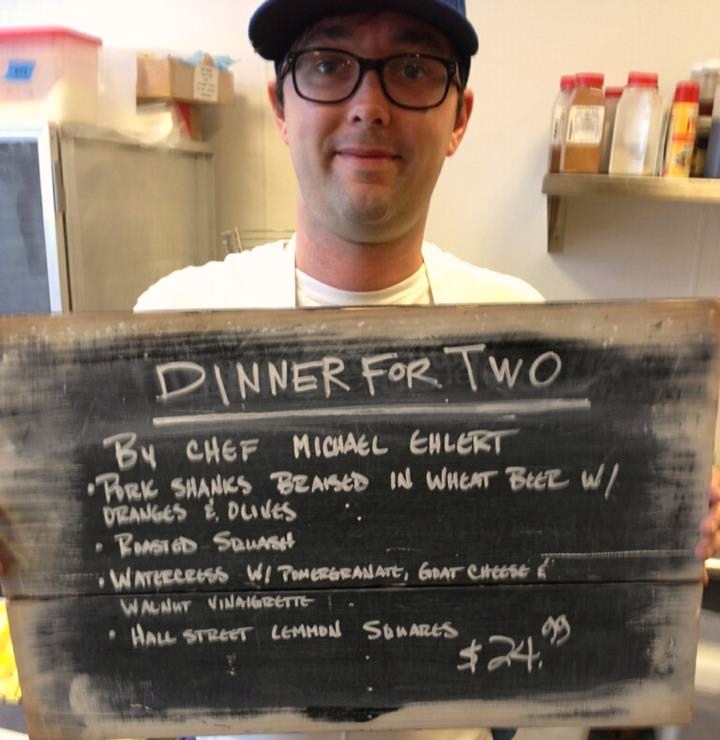 DINNER FOR TWO
BY CHEF MICHAEL EHLERT
• PORK SHANKS BRAISED IN WHEAT BEER W/
ORANGES & OLIVES
• ROASTED SQUASH
• WATERCRESS W/ POMERGRANATE, GOAT CHEESE &
WALNUT VINAIGRETTE
• HALL STREET LEMMON SQUARES
$24.99